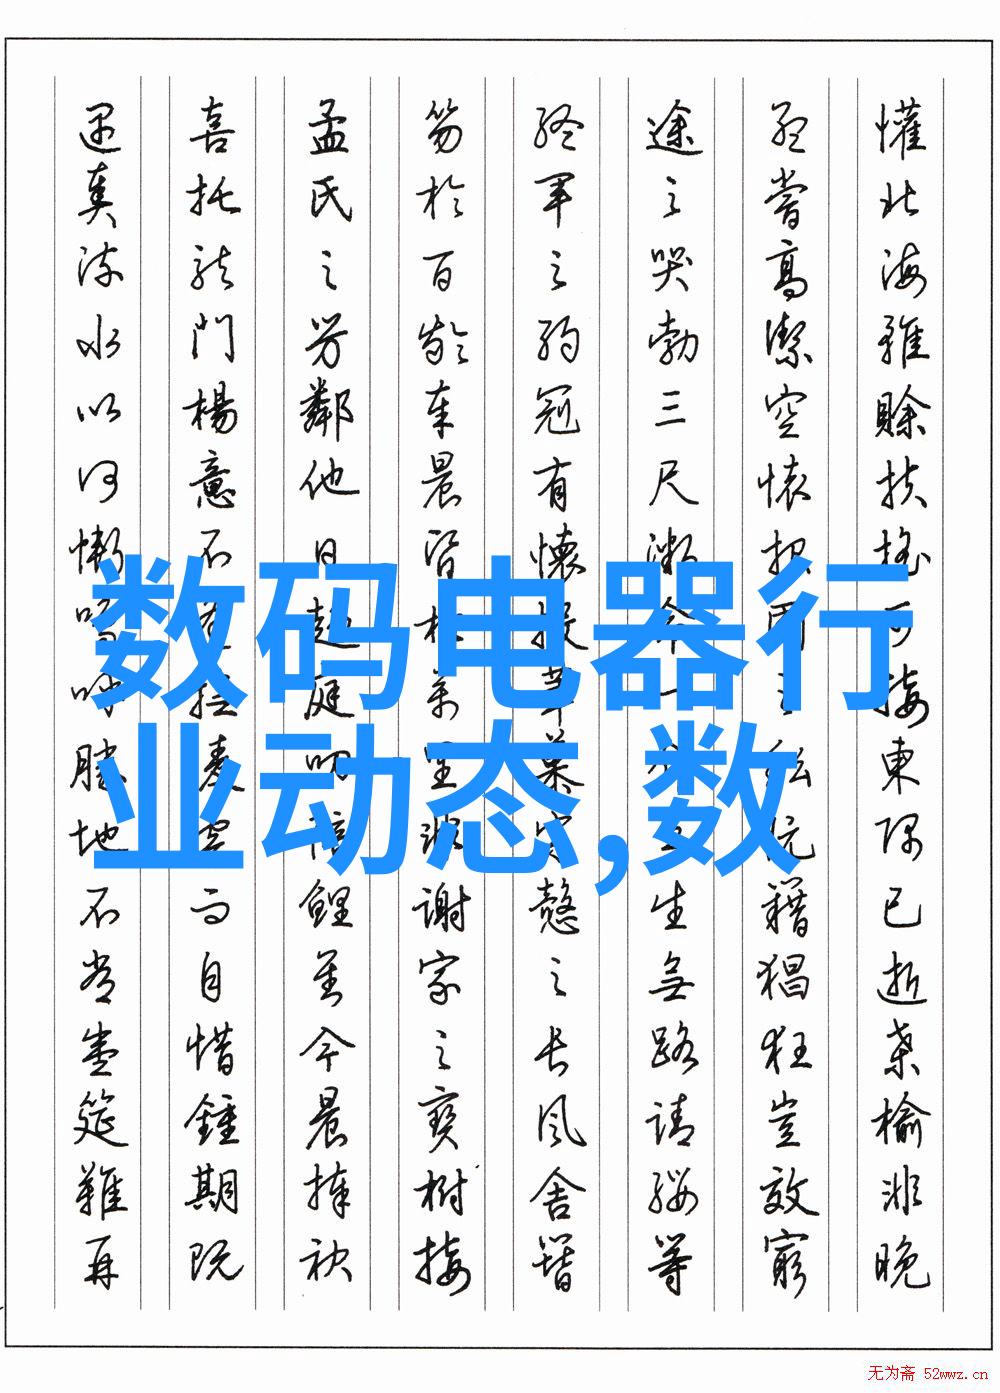 懽北海雖賒扶搖可接東隅已逝桑榆非晚
孟嘗高潔空懷報國之阮籍猖狂豈效窮
途之哭勃三尺微命一介書生無路請纓等
終軍之弱冠有懷投筆慕宗愨之長風舍簪
笏於百齡奉晨昏於萬里非謝家之寶樹接
孟氏之芳鄰他日趨庭叨陪鯉對今晨捧袂
喜托龍門楊意不逢撫凌雲而自惜鍾期既
遇奏流水以何慚嗚呼勝地不常盛筵難再
数码电器行
业动态,数
无为斋 52wwz.cn